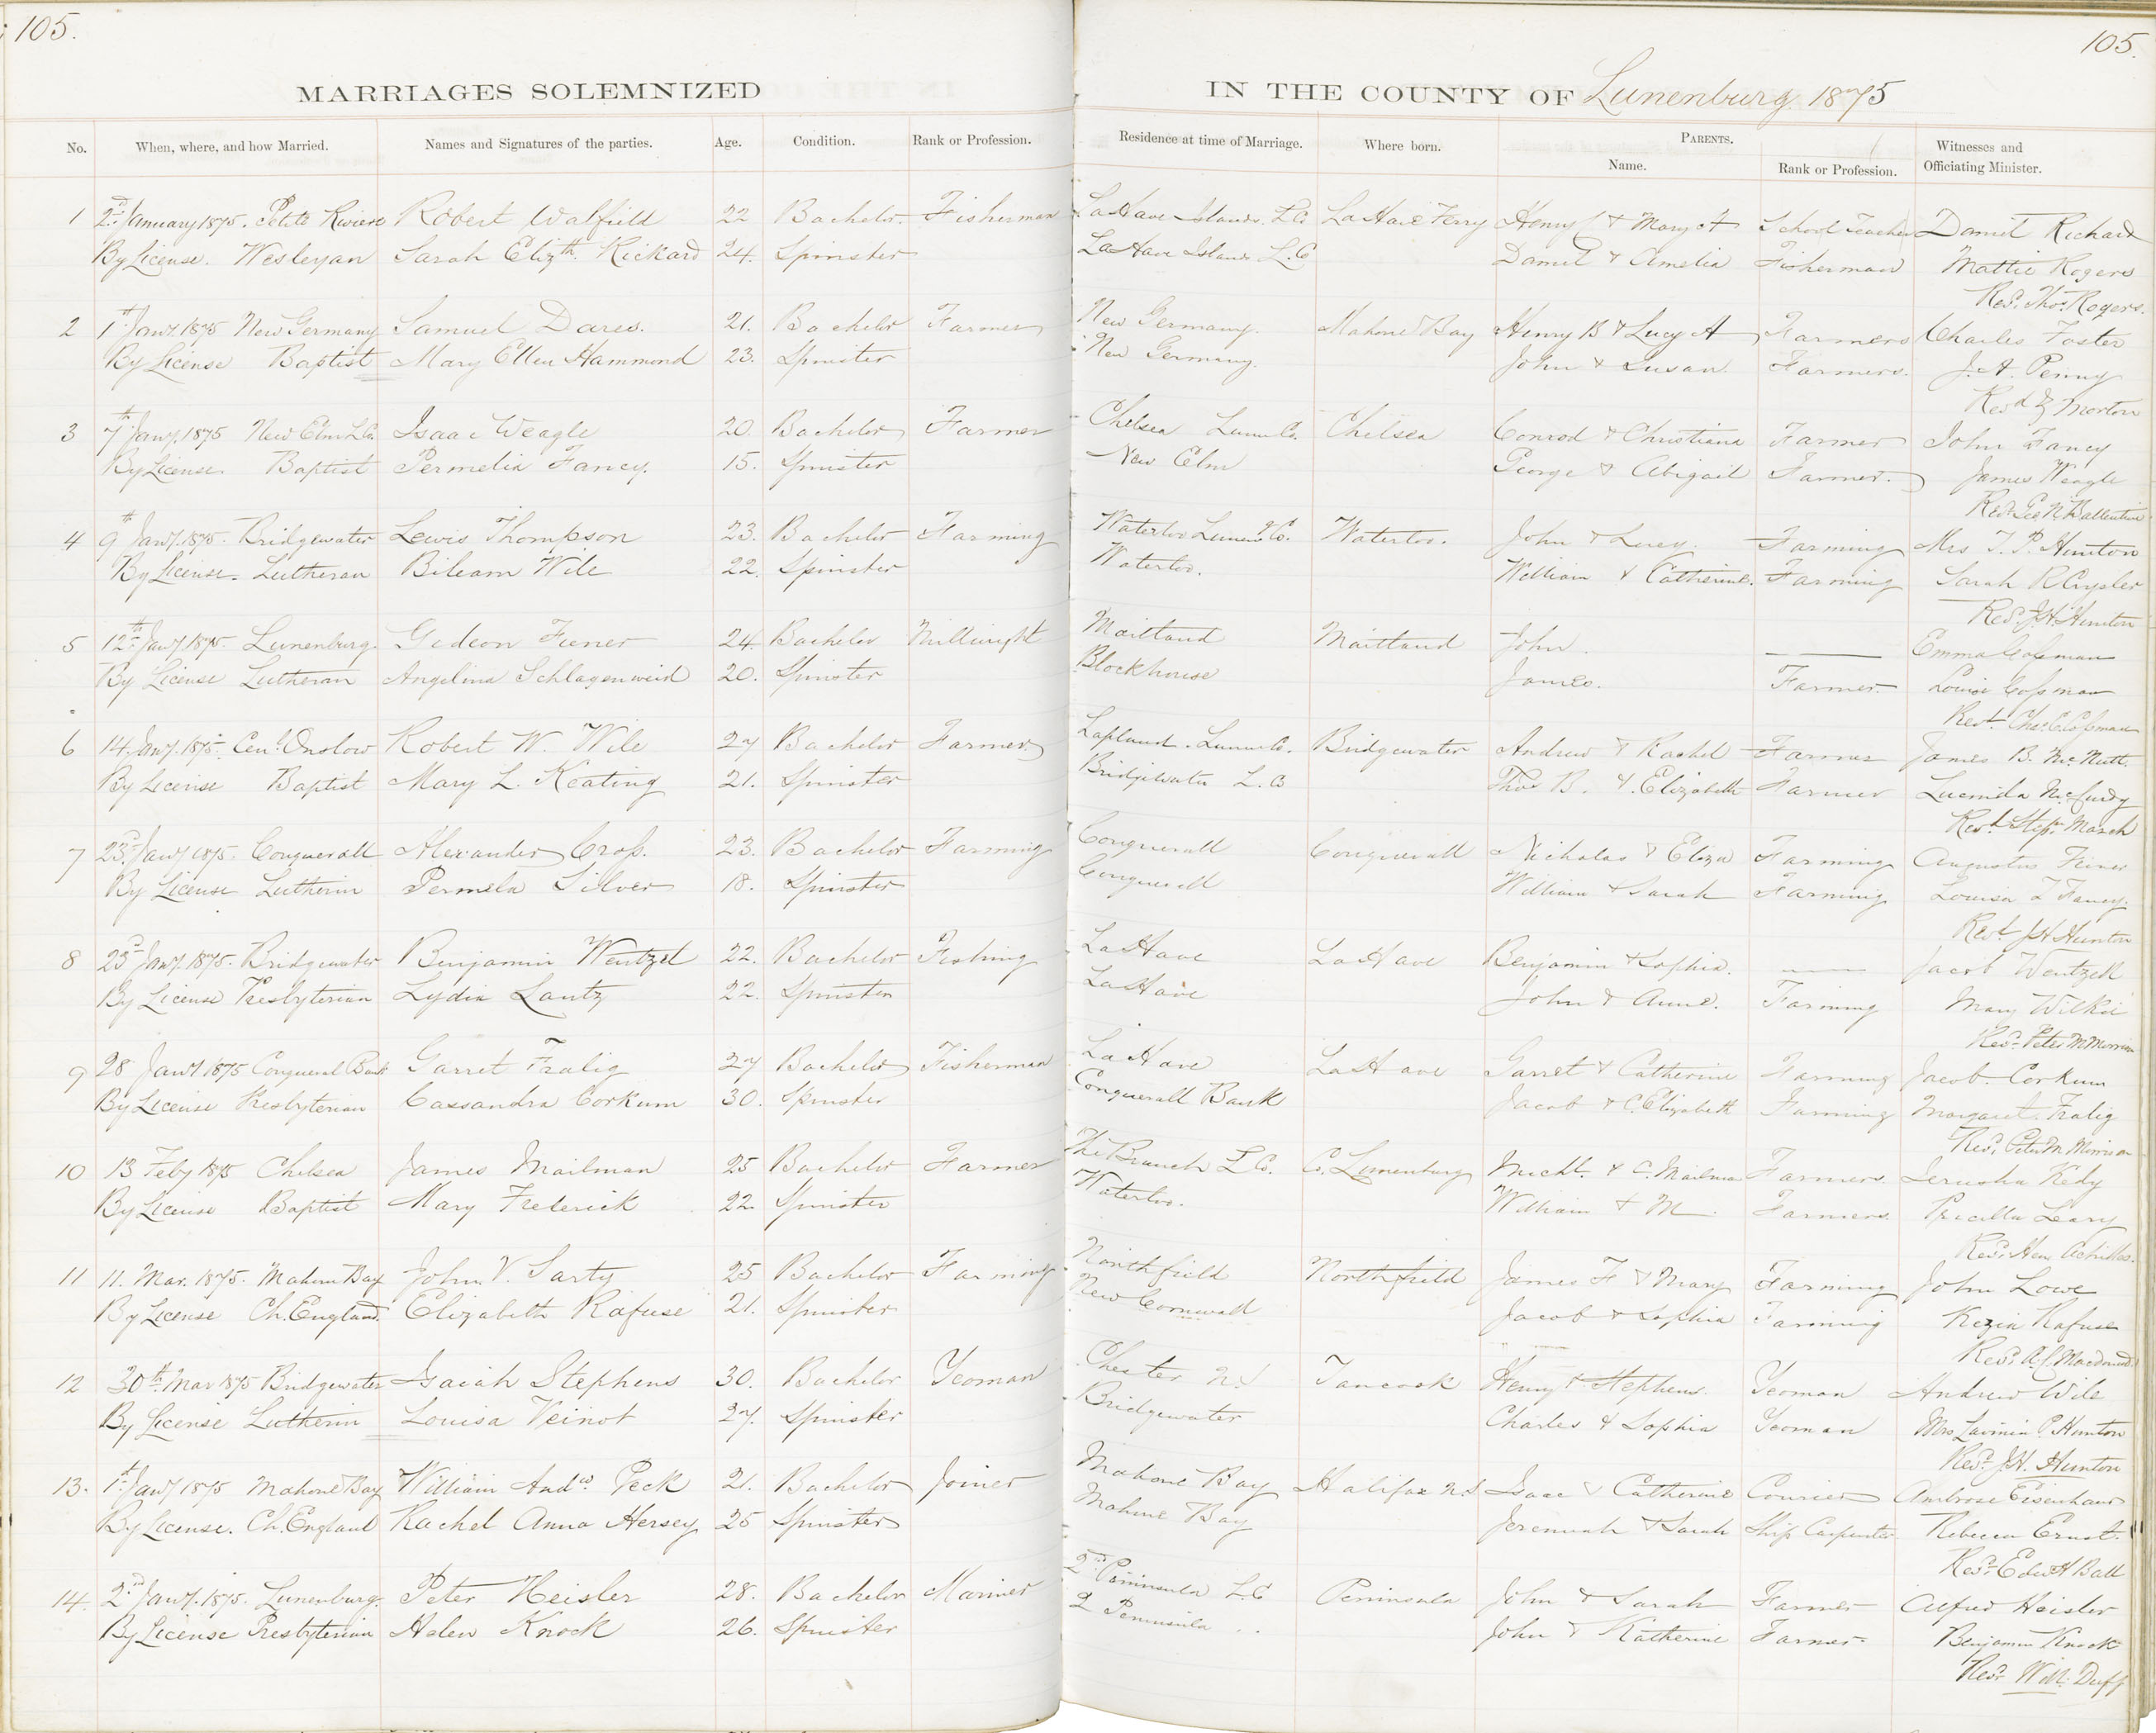 105.
105.
MARRIAGES SOLEMNIZED IN THE COUNTY OF Lunenburg 1875
No. When, where, and how Married. Names and Signatures of the parties. Age. Condition. Rank or Profession. Residence at time of Marriage. Where born. PARENTS. Name. Rank or Profession. Witnesses and Officiating Minister.
1 2nd January 1875. Petite Riviere Robert Walfield 22 Bachelor. Fisherman LaHave Islands. L.Co LaHave Ferry Henry & Mary A School Teacher Daniel Richard
By License. Wesleyan Sarah Elizth. Rickard 24. Spinster LaHave Islands L.C Daniel & Amelia Fisherman Mattie Rogers
Revd. Thos. Rogers.
2 1st Jany 1875 New Germany Samuel Dares. 21. Bachelor Farmer New Germany. Mahone Bay Henry B & Lucy A Farmers Charles Foster
By License Baptist Mary Ellen Hammond 23. Spinster New Germany. John & Susan Farmers. J. A. Penny
Revd Morton
3 7th Jany. 1875 New Elm L.Co. Isaac Weagle 20. Bachelor Farmer Chelsea Lunn Co. Chelsea Conrod & Christiana Farmer John Fancy
By License. Baptist Permelia Fancy. 15. Spinster New Elm George & Abigail Farmer. James Weagle
Revd. Geo. N. Ballentine
4 9th Jany. 1875. Bridgewater Lewis Thompson 23. Bachelor Farming Waterloo Lunen. Co. Waterloo. John & Lucy. Farming Mrs J. P. Hunton
By License. Lutheran Bileam Wile 22. Spinster Waterloo. William & Catherine. Farming Sarah R Crysler
Revd. J. H. Hunton
5 12th Jany. 1875. Lunenburg. Gideon Feener 24. Bachelor Millwright Maitland Maitland John. Emma Cossman
By License Lutheran Angelina Schlagenweid 20. Spinster Blockhouse James. Farmer. Louise Cossman
Revd. Chas. E. Cossman
6 14. Jany. 1875. Cenl. Onslow Robert W. Wile 27 Bachelor Farmer Lapland. Lunn Co. Bridgewater Andrew & Rachel Farmer James B. McNutt.
By License Baptist Mary L. Keating 21. Spinster Bridgewater L. Co Thos B. & Elizabeth Farmer Lucinda McCurdy
Revd. Stepn. March
7 23rd. Jany 1875. Conquerall Alexander Cross. 23. Bachelor Farming Conquerall Conquerall Nicholas & Eliza Farming Augustus Feiner
By License Lutherin Permela Silver 18. Spinster Conquerall William & Sarah Farming Louisa Fancy.
Revd. J H Hunton
8 23rd Jany. 1875. Bridgewater Benjamin Wentzel 22. Bachelor Fishing LaHave LaHave Benjamin & Sophia. Jacob Wentzel
By License Presbyterian Lydia Lantz 22. Spinster LaHave John & Anne. Farming Mary Wilkie
Revd. Peter M Morrison
9 28 Jany 1875 Conqueral Bank Garret Fralig 27 Bachelor Fisherman LaHave LaHave Garret & Catherine Farming Jacob Corkum
By License Presbyterian Cassandra Corkum 30. Spinster Conquerall Bank Jacob & C. Elizabeth Farming Margaret Fralig
Revd. Peter M. Morrison
10 13 Feby 1875 Chelsea James Mailman 25 Bachelor Farmer The Branch L Co. Co. Lunenburg Michl. & C. Mailman Farmers. Jerusha Kedy
By License Baptist Mary Frederick 22. Spinster Waterloo. William & M Farmers. Pricilla Leary
Revd. Hen Achilles.
11 11. Mar. 1875. Mahone Bay John V. Sarty 25 Bachelor Farming Northfield Northfield James F & Mary Farming John Lowe
By License Ch. England. Elizabeth Rafuse 21. Spinster New Cornwall Jacob & Sophia Farming Kezia Rafuse
Revd. A. C. Macdonald
12 30th. Mar 1875 Bridgewater Isaiah Stephens 30. Bachelor Yeoman Chester N.S Tancook Henry & Stephens. Yeoman Andrew Wile
By License Lutherin Louisa Veinot 27. Spinster Bridgewater Charles & Sophia Yeoman Mrs Lavinia P. Hunton
Revd. J. H. Hunton
13. 1st. Jany 1875 Mahone Bay William Andw. Peck 21. Bachelor Joiner Mahone Bay Halifax N.S Isaac & Catherine Courier Ambrose Eisenhaur
By License. Ch. England Rachel Anna Hersey 25 Spinster Mahone Bay Jeremiah & Sarah Ship Carpenter Rebecca Ernst.
Revd. Edwd H Ball
14. 2nd Jany. 1875. Lunenburg. Peter Heisler 28. Bachelor Mariner 2nd Peninsula L.C Peninsula John & Sarah Farmer Alfred Heisler
By License Presbyterian Helen Knock 26. Spinster 2 Peninsula John & Katherine Farmer. Benjamin Knock
Revd. Wm. Duff